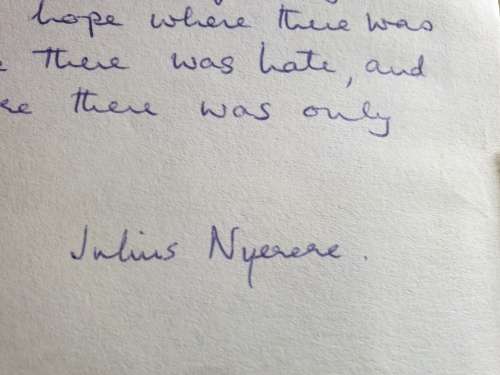 hope where there was
there was hate, and
there was only
Julius Nyerere.